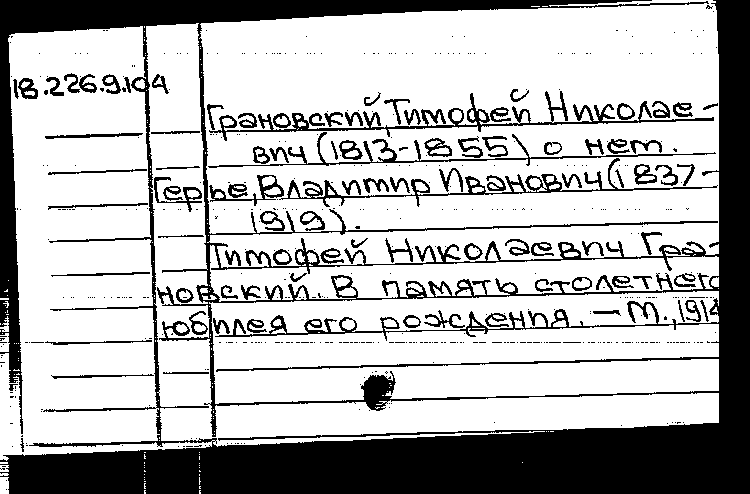 18.226.9.104
Грановский, Тимофей Николае-
вич (1813-1855) о нем.
Герье, Владимир Иванович (1837-
1919).
Тимофей Николаевич Гра-
новский. В память столетнего
юбилея его рождения. — М., 1914